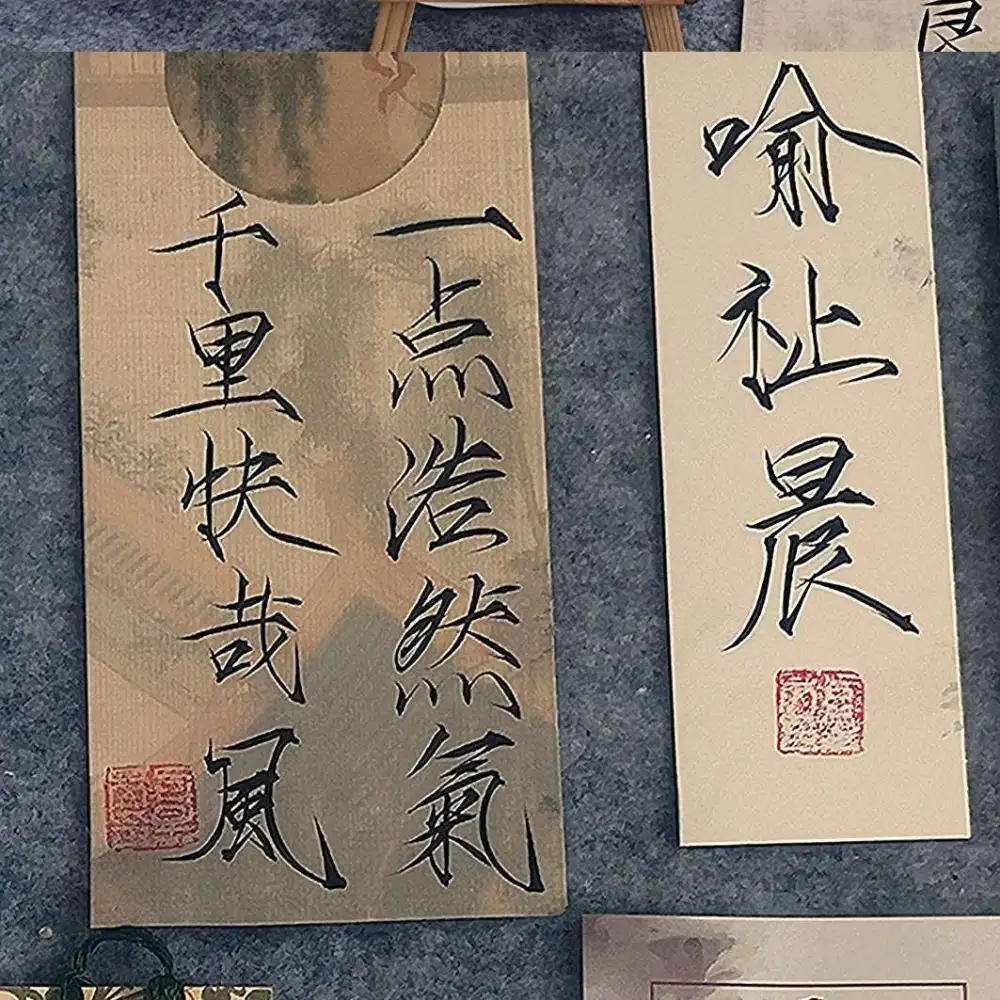 一点浩然氣
千里快哉風
喻祉晨